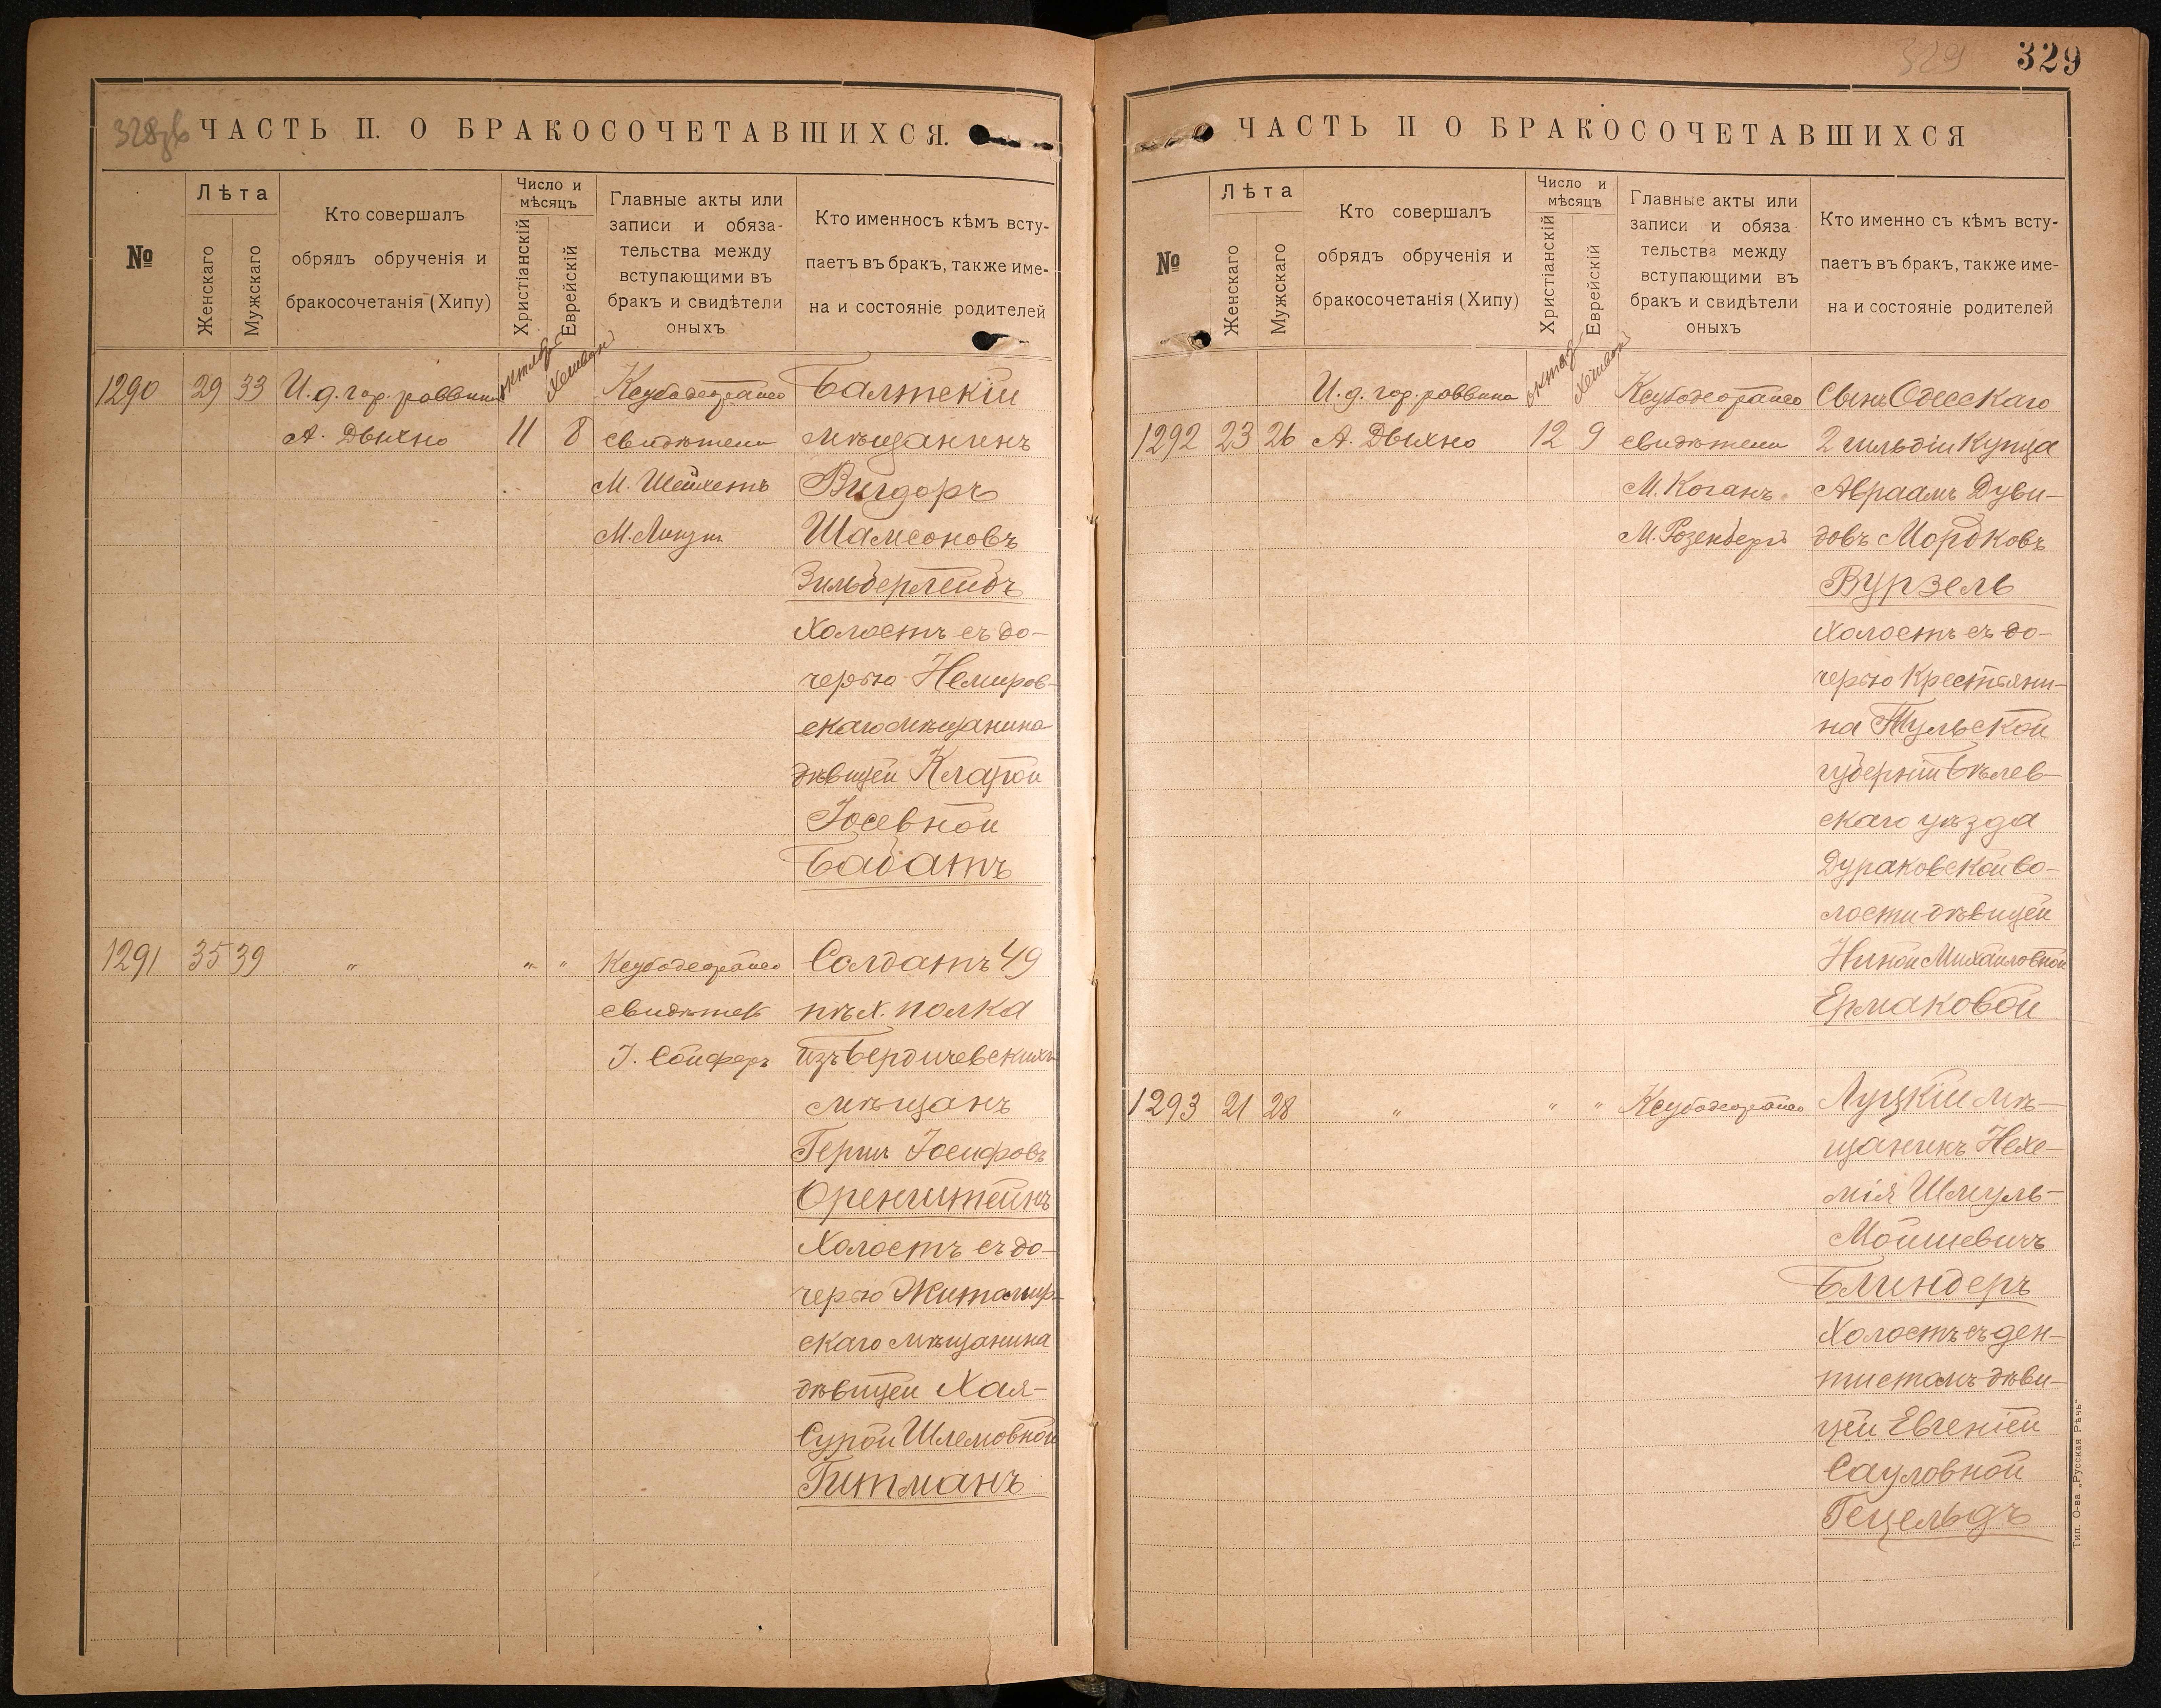 328об
ЧАСТЬ II. О БРАКОСОЧЕТАВШИХСЯ.
№
Лѣта
Женскаго
Мужскаго
Кто совершалъ
обрядъ обрученія и
бракосочетанія (Хипу)
Число и
мѣсяцъ
Христіанскій
Еврейскій
Главные акты или
записи и обяза-
тельства между
вступающими въ
бракъ и свидѣтели
оныхъ
Кто именносъ кѣмъ всту-
паетъ въ бракъ, также име-
на и состояніе родителей
1290 29 33 И. д. гор. раввина
октяб Хешван
Балтскій
А. Дыхно 11 8 свидѣтели мѣщанинъ
М. Шейхетъ Вигдоръ
Шамсоновъ
Зильберлейдъ
Холостъ съ до-
черью Немиров-
скаго мѣщанина
дѣвицей Кларой
Іосевной
Бабатъ
1291 35 39 " " " Солдатъ 49
пѣх. полка
І. Сойферъ изъ Бердичевскихъ
мѣщанъ
Герш Іосифовъ
Оренштейнъ
Холостъ съ до-
черью Житомир-
скаго мѣщанина
дѣвицей Хая-
Сурой Шлемовной
Гитманъ
329
329
ЧАСТЬ II О БРАКОСОЧЕТАВШИХСЯ
№
Лѣта
Женскаго
Мужскаго
Кто совершалъ
обрядъ обрученія и
бракосочетанія (Хипу)
Число и
мѣсяцъ
Христіанскій
Еврейскій
Главные акты или
записи и обяза
тельства между
вступающими въ
бракъ и свидѣтели
оныхъ
Кто именно съ кѣмъ всту-
паетъ въ бракъ, также име-
на и состояніе родителей
И. д. гор. раввина октяб Хешван Сынъ Одесскаго
1292 23 26 А. Дыхно 12 9 свидѣтели 2 гильдіи Купца
М. Коганъ Авраамъ Дуви-
М. Розенбергъ довъ Мордковъ
Вурзель
Холостъ съ до-
черью Крестьяни-
на Тульской
губерніи Бѣлев-
скаго уѣзда
Дураковской во-
лости дѣвицей
Ниной Михайловной
Ермаковой
1293 21 28 " " " Луцкій мѣ-
щанинъ Нехе-
мія Шмуль-
Мойшевичъ
Блиндеръ
Холостъ съ ден-
тистомъ дѣви-
цей Евгеніей
Сауловной
Гецельдъ
Тип. О-ва „Русская Рѣчь"